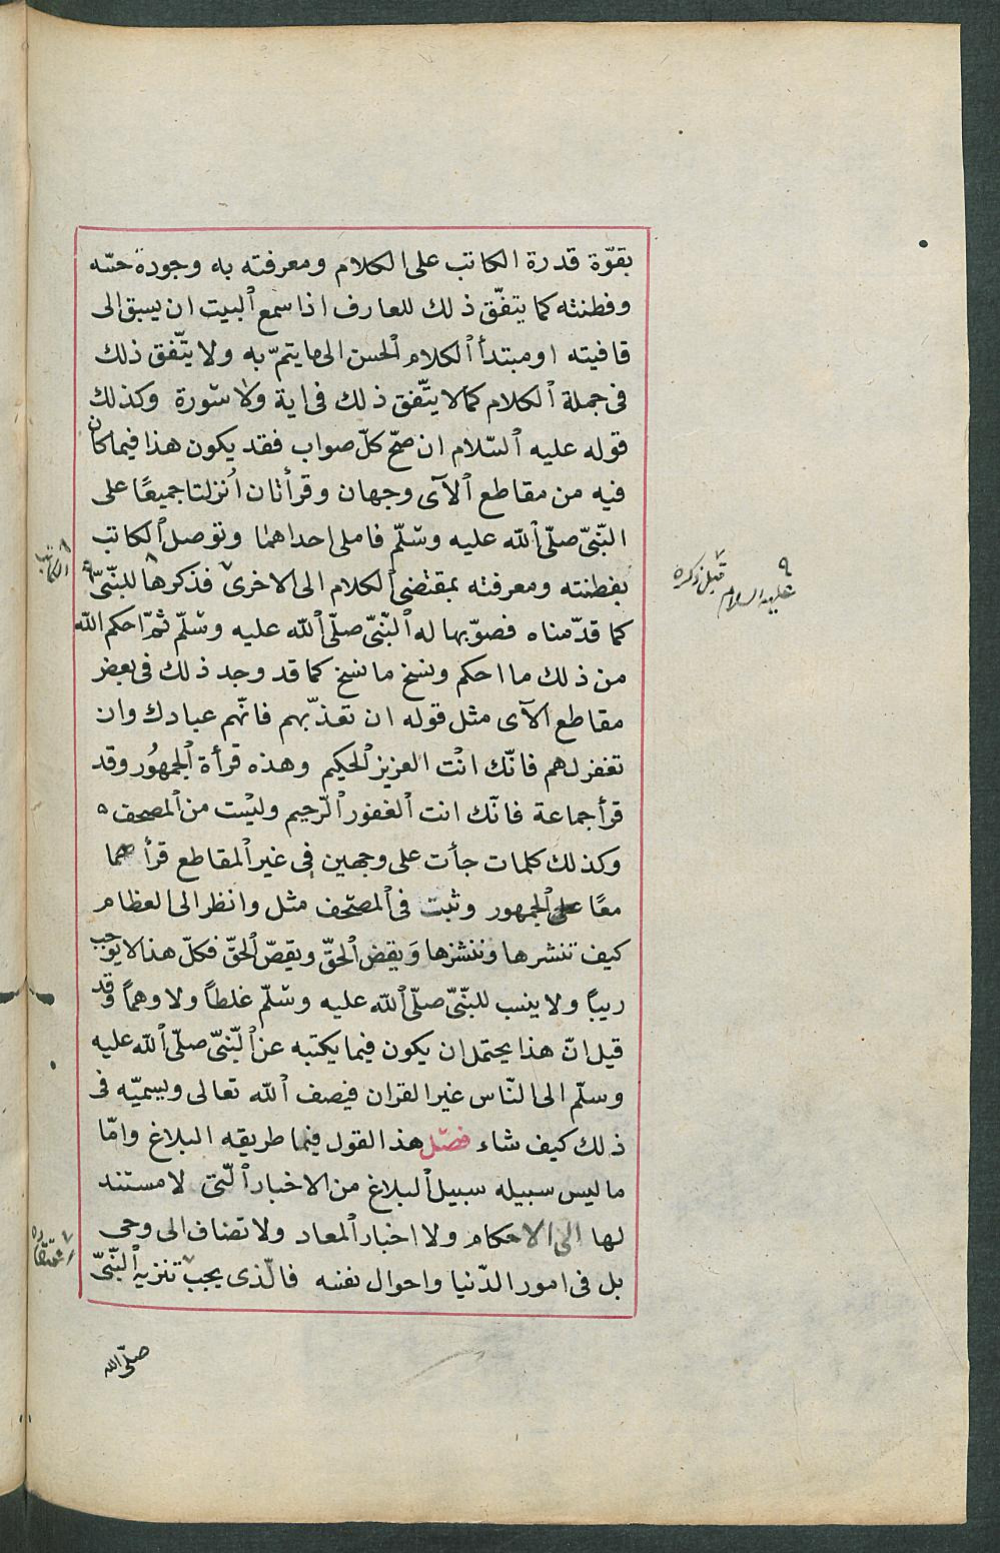 بقوّة قدرة الكاتب على الكلام ومعرفته به وجودة حسّه
وفطنته كما يتفّق ذلك للعارف اذا سمع ٱلبيت ان يسبق الى
قافيته او مبتدأ ٱلكلام ٱلحسن الى ما يتمّ به ولا يتّفق ذلك
فى جملة ٱلكلام كما لا يتّفق ذلك فى اية ولا سورة وكذلك
قوله عليه ٱلسّلام ان صحّ كلّ صواب فقد يكون هذا فيما كان
فيه من مقاطع ٱلآى وجهان وقرأتان اُنزلتا جميعًا على
النّبىّ صلّى ٱلله عليه وسّلّم فاملى احداهما وتوصل ٱلكاتب
بفطنته ومعرفته بمقتضى ٱلكلام الى الاخرى فذكرها للنّبىّ
كما قدّمناه فصوّبها له ٱلنّبىّ صلّى ٱلله عليه وسّلّم ثمّ احكم الله
من ذلك ما احكم ونسخ ما نسخ كما قد وجد ذلك فى بعض
مقاطع الآى مثل قوله ان تعذّبهم فانّهم عبادك وان
تغفر لهم فانّك انْت العزيز ٱلحكيم وهذه قرأة ٱلجمهُور وقد
قرأ جماعة فانّك انت ٱلغفور ٱلرّحيم وليْست من ٱلمصحف ه
وكذلك كلمات جأت على وجهين فى غير ٱلمقاطع قرأ هما
معًا على ٱلجمهور وثبت فى ٱلمصحف مثل وانظر الى العظام
كيف ننشرها وننشزها وَيقض ٱلحقّ ويقصّ ٱلحقّ فكلّ هذا لا يوجب
ريبًا ولا ينسب للنّبىّ صلّى ٱلله عليه وسّلّم غلطًا ولا وهمًا وقد
قيل انّ هذا يحتمل ان يكون فيما يكتبه عن ٱلنّبىّ صلّى ٱلله عليه
وسلّم الى النّاس غير القران فيصف ٱلله تعالى ويسميّه فى
ذلك كيف شاء فصّل هذ القول فيما طريقه البلاغ وامّا
ما ليس سبيله سبيل ٱلبلاغ من الاخبار ٱلّتى لا مستند
لها الى الاحكام ولا اخبار ٱلمعاد ولا تضاف الى وحى
بل فى امور الدّنيا واحوال نفسه فالّذى يجب تنزيه ٱلنّبىّ
صلّى الله
٩
عليه السلام
٧
قبل ذكره
٨
الكاتب